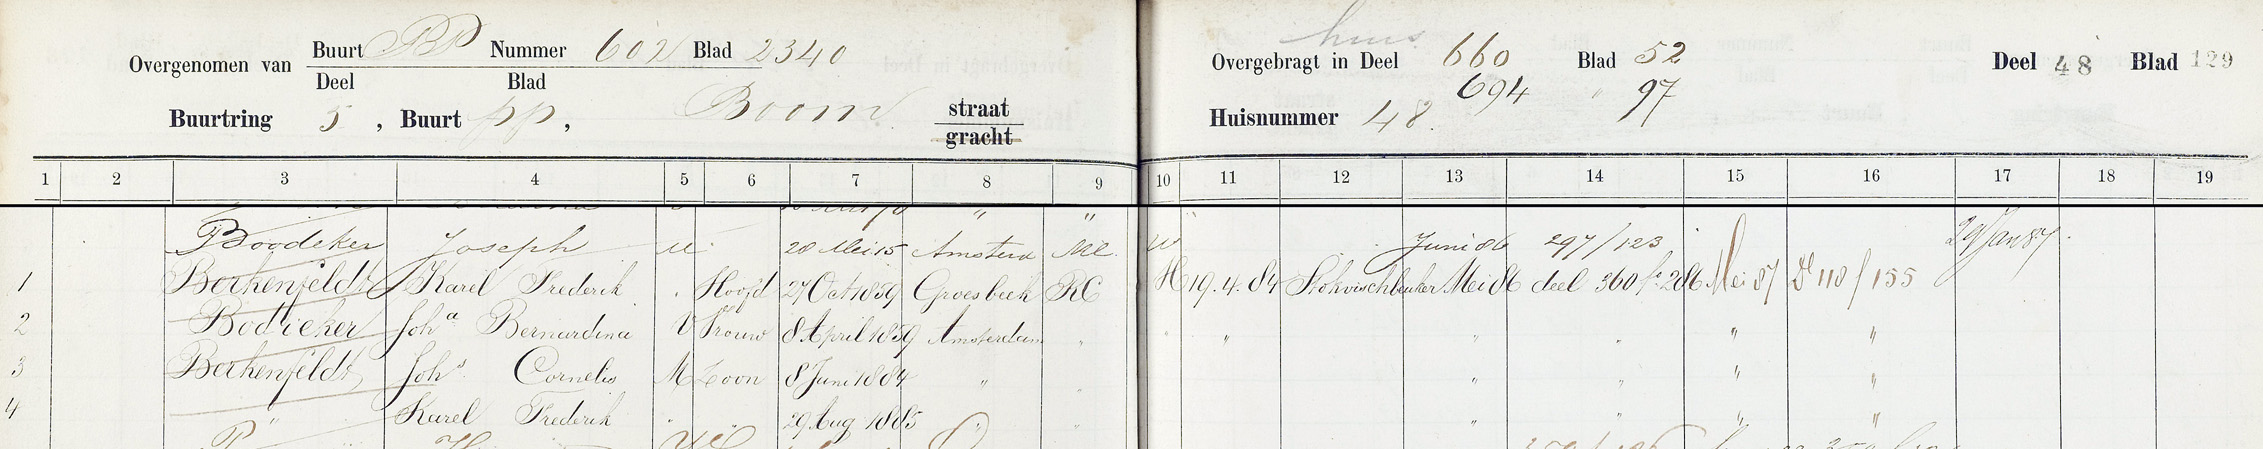 Overgenomen van Buurt PP Nummer 602 Blad 2340
Deel Blad
Buurtring 5, Buurt pp, Boom straat
gracht
huis
Overgebragt in Deel 660 Blad 52
694 " 97
Huisnummer 48.
Deel 48 Blad 129
1 2 3 4 5 6 7 8 9 10 11 12 13 14 15 16 17 18 19
Boodeker Joseph M 20 Mei 15 Amsterd W Juni 86 297/123 29 Jan 87
1 Borkenfeldt Karel Frederik Hoofd 27 Oct 1859 Groesbeek RC H 19.4.84 Stokvischbeuker Mei 86 deel 360 fo 286 Mei 87 D 118/155
2 Bodieker Joha Bernardina V Vrouw 8 April 1859 Amsterdam " " " " " " "
3 Borkenfeldt Johs Cornelis M Zoon 8 Juni 1884 " " " " " "
4 " Karel Frederik " " 29 Aug 1885 " " " " " "